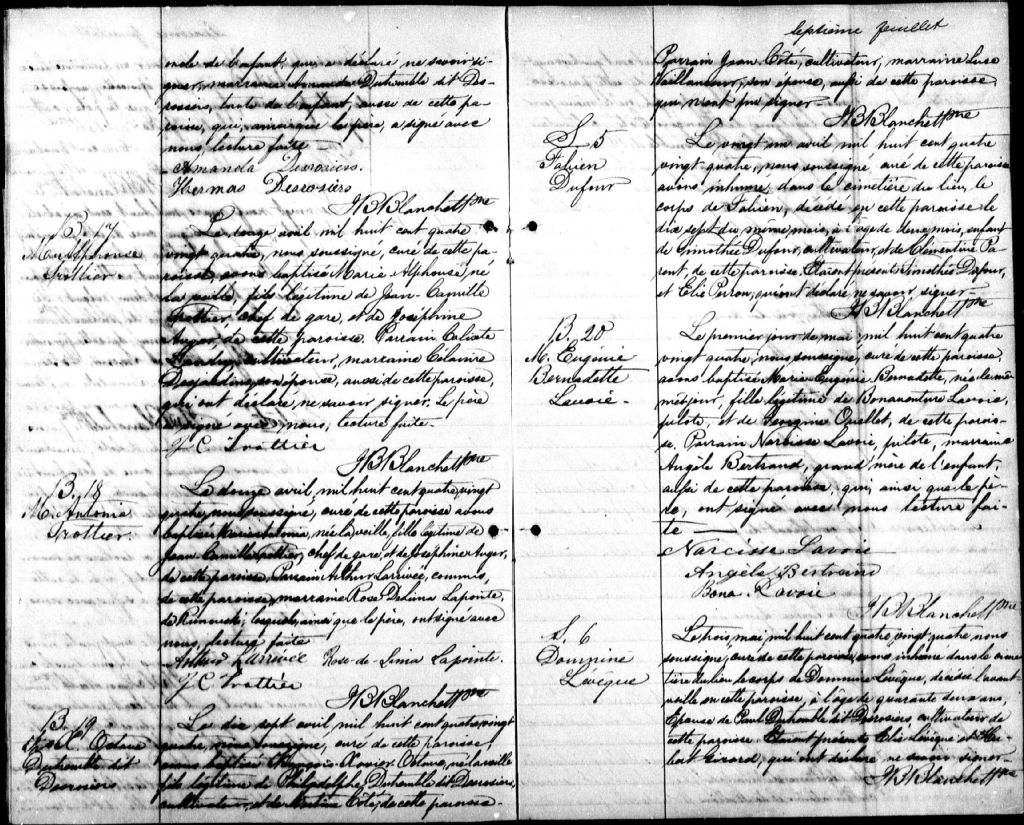 oncle de l'enfant, qui a déclaré ne savoir si-
gner, marraine Amanda Dutremble dit Des-
rosiers, tante de l'enfant, aussi de cette pa-
roisse, qui, ainsi que le père, a signé avec
nous, lecture faite
Amanda Desrosiers.
Hermas Desrosiers
JBBlanchet Ptre
B. 17
M. Alphonse
Trottier
Le douze avril mil huit cent quatre
vingt quatre, nous soussigné, curé de cette pa-
roisse, avons baptisé Marie Alphonse, né
la veille, fils légitime de Jean-Camille
Trottier, chef de gare, et de Joséphine
Auger, de cette paroisse. Parrain Calixte
cultivateur, marraine Célanire
Desjardins, son épouse, aussi de cette paroisse,
qui ont déclaré ne savoir signer. Le père
a signé avec nous, lecture faite.
J C Trottier
JBBlanchet Ptre
B. 18
M. Antonia
Trottier.
Le douze avril, mil huit cent quatre vingt
quatre, nous soussigné, curé de cette paroisse avons
baptisé Marie Antonia, née la veille, fille légitime de
Jean Camille Trottier, chef de gare, et de Joséphine Auger,
de cette paroisse, Parrain Arthur Larrivée, commis,
de cette paroisse, marraine Rose Delima Lapointe,
de Rimouski; lesquels, ainsi que le père, ont signé avec
nous, lecture faite
Arthur Larrivée Rose-de-Lima Lapointe.
J C Trottier
JBBlanchet Ptre
B. 19
Octave
Dutremble dit
Desrosiers
Le dix sept avril, mil huit cent quatre vingt
quatre, nous soussigné, curé de cette paroisse,
avons baptisé François Xavier Octave, né la veille
fils légitime de Philadelphe Dutremble dit Desrosiers,
cultivateur, et de Côté, de cette paroisse.
septième feuillet
Parrain Jean Côté, cultivateur, marraine Luce
Vaillancour, son épouse, aussi de cette paroisse,
qui n'ont pu signer
JBBlanchet Ptre
S. 5
Fabien
Dufour
Le vingt un avril mil huit cent quatre
vingt-quatre, nous soussigné curé de cette paroisse
avons inhumé, dans le cimetière du lieu, le
corps de Fabien, décédé en cette paroisse le
dix sept du même mois, à l'age de deux mois, enfant
de Timothée Dufour, cultivateur, et de Clémentine Pa-
rent, de cette paroisse. Etaient présents Timothée Dufour,
et Elie Perron, qui ont déclaré ne savoir signer.
JBBlanchet Ptre
B. 20
M. Eugénie
Bernadette
Lavoie.
Le premier jour de mai mil huit cent quatre
vingt quatre, nous soussigné, curé de cette paroisse,
avons baptisé Marie Eugénie Bernadette, née le mê-
me jour, fille légitime de Bonaventure Lavoie,
pilote, et de Georgina Ouellet, de cette parois-
se, Parrain Narcisse Lavoie, pilote, marraine
Angèle Bertrand, grand'mère de l'enfant,
aussi de cette paroisse, qui, ainsi que le pè-
re, ont signé avec nous lecture fai-
te
Narcisse Lavoie
Angèle Bertrand
Bona. Lavoie
JBBlanchet Ptre
S. 6
Domnine
Lévéque
Le trois, mai mil huit cent quatre vingt quatre nous
soussigné, curé de cette paroisse, avons inhumé dans le cime-
tière du lieu le corps de Domnine Lévéque, décédée l'avant
veille en cette paroisse, à l'age de quarante deux ans,
épouse de Paul Dutremble dit Desrosiers, cultivateur de
cette paroisse. Etaient présents Elie Lévéque et Hu-
bert Girard, qui ont déclaré ne savoir signer.
JBBlanchet Ptre